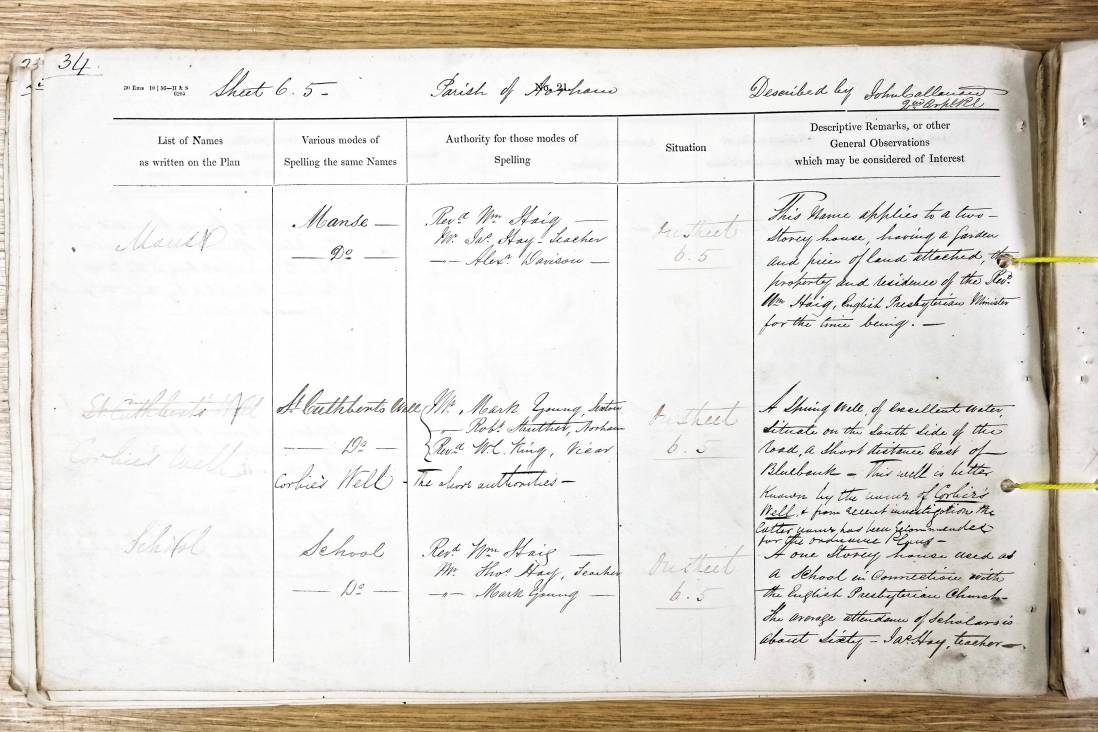 34
30 Exms 10 | 56—H & S
6293
Sheet 6. 5 — Parish of Norham Described by John Callanan
2nd Corpl RE
List of Names
as written on the Plan
Various modes of
Spelling the same Names
Authority for those modes of
Spelling
Situation
Descriptive Remarks, or other
General Observations
which may be considered of Interest
Manse
Manse —
— Do —
Revd. Wm Haig —
Mr. Jas. Hay - Teacher
— Alexr. Davison —
On sheet
6. 5
This Name applies to a two -
Storey house, having a Garden
and piece of land attached, the
property and residence of the Revd.
Wm Haig, English Presbyterian Minister
for the time being. —
St Cuthbert's Well
Corbie's Well
St Cuthberts Well
— Do —
Corbie's Well -
Mr. Mark Young, Sexton
-"- Robt. Struther, Norham
Revd W.C. King, Vicar
The above authorities —
On sheet
6. 5
A Spring Well, of excellent water,
Situate on the South side of the
road, a short distance East of —
Bluebank — This well is better
Known by the name of Corbie's
Well, & from recent investigation the
latter name has been recommended
for the Ordnance Plans —
School
School
— Do —
Revd Wm Haig —
Mr. Thos Hay, Teacher
-"- Mark Young —
On sheet
6. 5
A one Storey house used as
a School in Connection with
the English Presbyterian Church —
The average attendance of Scholars is
about Sixty — Jas. Hay, teacher —